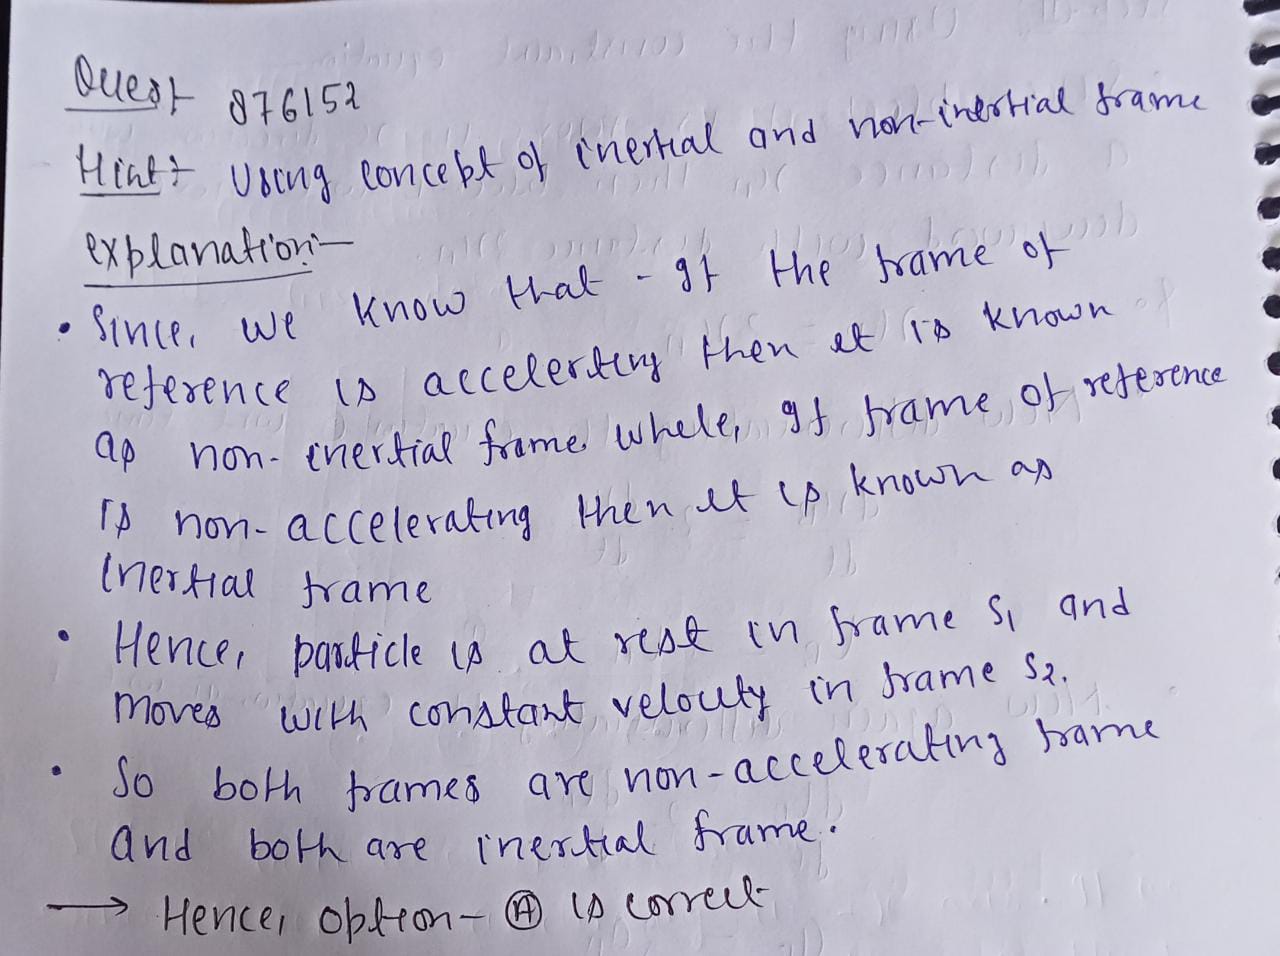 Quest 876152
Hint:- Using concept of inertial and non-inertial frame
explanation:-
• Since, we know that - If the frame of
reference is accelerting then it is known
as non-inertial frame while, If frame of reference
is non-accelerating then it is known as
Inertial frame
• Hence, particle is at rest in frame S₁ and
moves with constant velocity in frame S₂.
• So both frames are non-accelerating frame
and both are inertial frame.
→ Hence, option- Ⓐ is correct